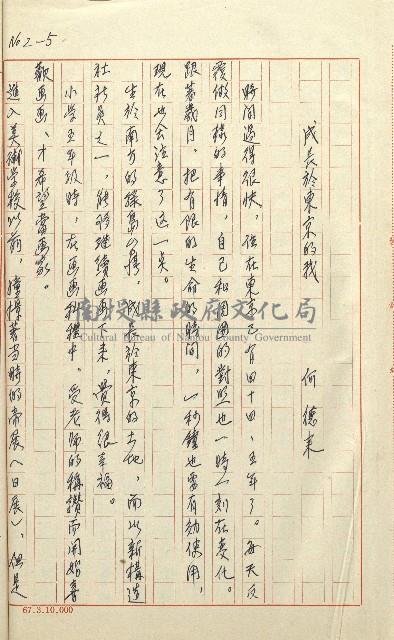 No 2-5
成長於東京的我
何德来
時间過得很快，住在東京已有四十四、五年了。每天反
覆做同樣的事情，自己和周囲的對照也一時一刻在変化。
跟著歲月，把有限的生命的時间，一秒鐘也要有効使用，
現在也会注意了这一点。
生於南方的綠島台灣，成長於東京的土地，而以新構造
社社員之一，能够継續画画下来，覺得很幸福。
小学五年级時，在画画科程中。受老师的稱讚而開始喜
歡画画、才希望當画家。
進入美術学校以前，憧憬著当時的帝展（日展），但是
南投縣政府文化局
Cultural Bureau of Nantou County Government
67.3.10.000